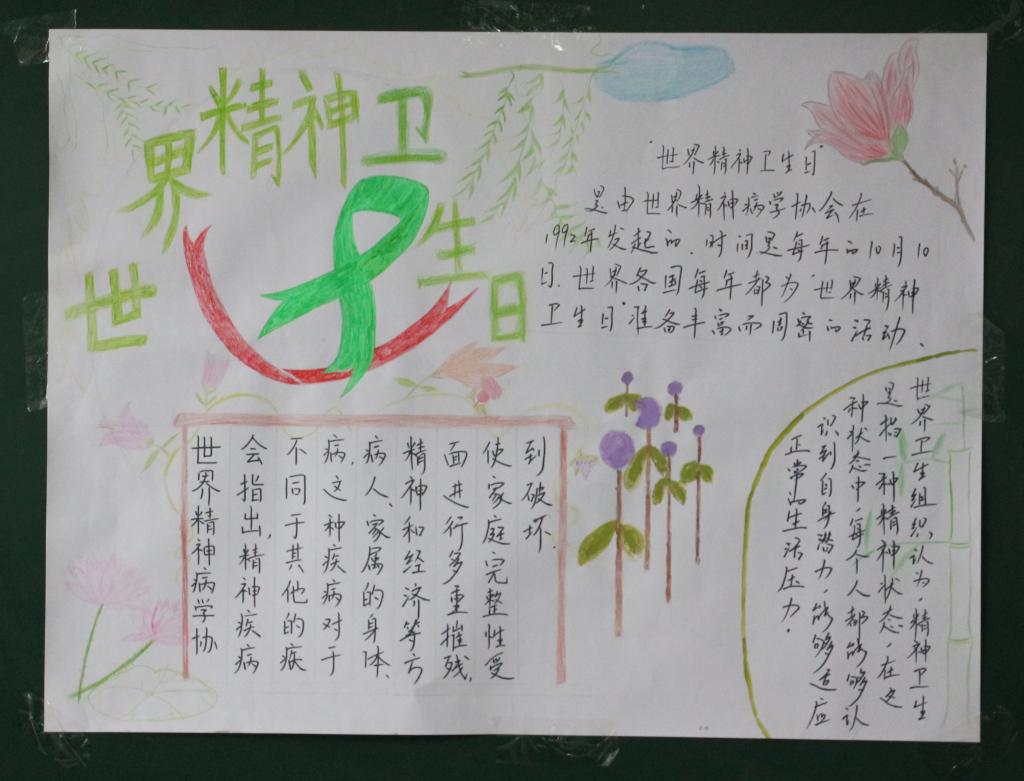 世界精神卫生日
"世界精神卫生日"
是由世界精神病学协会在
1992年发起的.时间是每年的10月10
日.世界各国每年都为"世界精神
卫生日"准备丰富而周密的活动.
世界精神病学协
会指出,精神疾病
不同于其他的疾
病,这种疾病对于
病人、家属的身体、
精神和经济等方
面进行多重摧残,
使家庭完整性受
到破坏.
世界卫生组织认为,精神卫生
是指一种精神状态,在这
种状态中,每个人都能够认
识到自身潜力,能够适应
正常的生活压力.